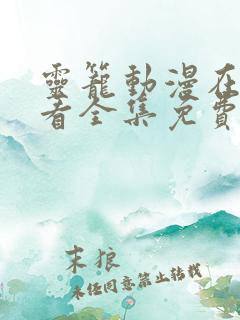 靈籠動漫在
看全集免費
末狼
未经同意禁止转载